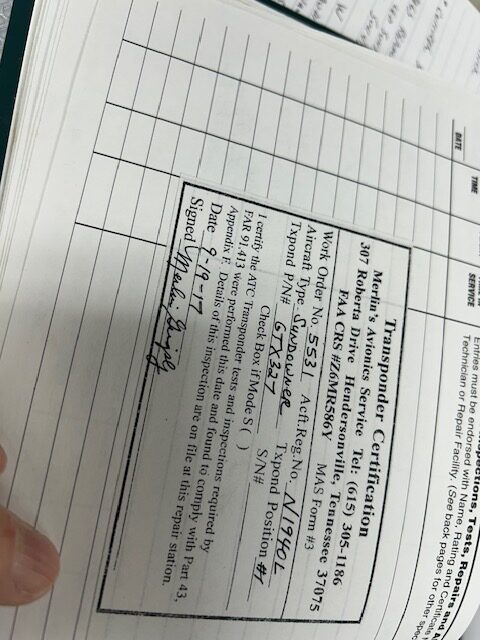 Inspections, Tests, Repairs and
Entries must be endorsed with Name, Rating and Certificate
Technician or Repair Facility. (See back pages for other spec
DATE
TIME
SERVICE
Transponder Certification
Merlin's Avionics Service Tel: (615) 305-1186
307 Roberta Drive Hendersonville, Tennessee 37075
FAA CRS #Z6MR586Y MAS Form #3
Work Order No. 5531 Acft.Reg.No. N1940L
Aircraft Type SUNDOWNER Txpond Position #1
Txpond P/N# GTX327 S/N#
Check Box if Mode S ( )
I certify the ATC Transponder tests and inspections required by
FAR 91.413 were performed this date and found to comply with Part 43,
Appendix F. Details of this inspection are on file at this repair station.
Date 9-19-17
Signed